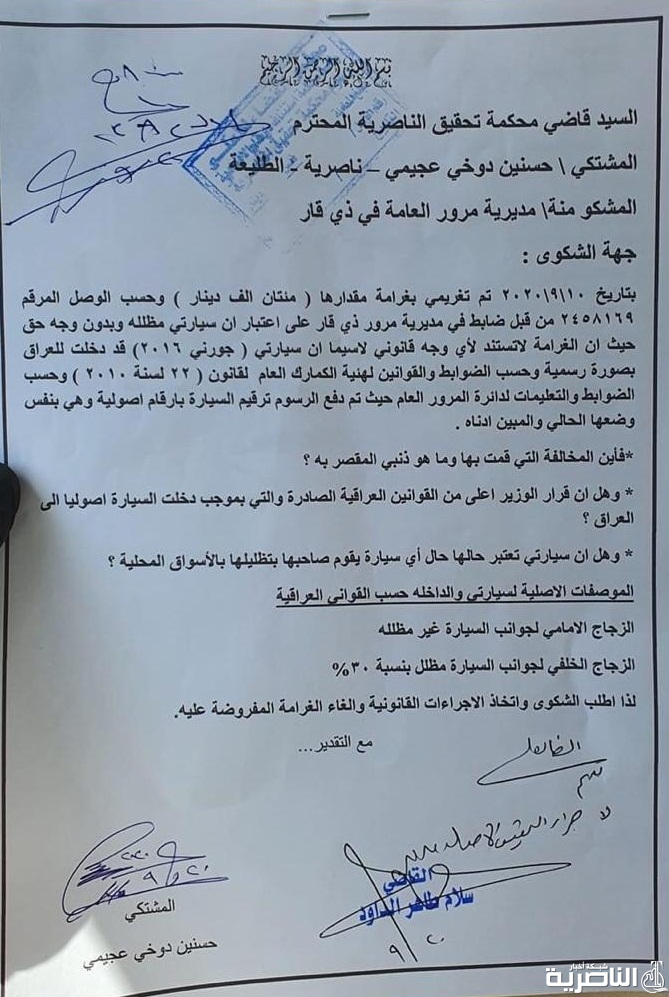 بسم الله الرحمن الرحيم
السيد قاضي محكمة تحقيق الناصرية المحترم
المشتكي \ حسنين دوخي عجيمي – ناصرية - الطليعة
المشكو منة\ مديرية مرور العامة في ذي قار
جهة الشكوى :
بتاريخ ٢٠٢٠/٩/١٠ تم تغريمي بغرامة مقدارها ( منتان الف دينار ) وحسب الوصل المرقم
٢٤٥٨١٦٩ من قبل ضابط في مديرية مرور ذي قار على اعتبار ان سيارتي مظلله وبدون وجه حق
حيث ان الغرامة لاتستند لأي وجه قانوني لاسيما ان سيارتي ( جورني ٢٠١٦) قد دخلت للعراق
بصورة رسمية وحسب الضوابط والقوانين لهيئة الكمارك العام لقانون ( ٢٢ لسنة ٢٠١٠ ) وحسب
الضوابط والتعليمات لدائرة المرور العام حيث تم دفع الرسوم ترقيم السيارة بارقام اصولية وهي بنفس
وضعها الحالي والمبين ادناه .
*فأين المخالفة التي قمت بها وما هو ذنبي المقصر به ؟
* وهل ان قرار الوزير اعلى من القوانين العراقية الصادرة والتي بموجب دخلت السيارة اصوليا الى
العراق ؟
* وهل ان سيارتي تعتبر حالها حال أي سيارة يقوم صاحبها بتظليلها بالأسواق المحلية ؟
الموصفات الاصلية لسيارتي والداخله حسب القواني العراقية
الزجاج الامامي لجوانب السيارة غير مظلله
الزجاج الخلفي لجوانب السيارة مظلل بنسبة ٣٠%
لذا اطلب الشكوى واتخاذ الاجراءات القانونية والغاء الغرامة المفروضة عليه.
مع التقدير...
القاضي
سلام طاهر الداود
٩/٢٠
المشتكي
حسنين دوخي عجيمي
شبكة أخبار
الناصرية